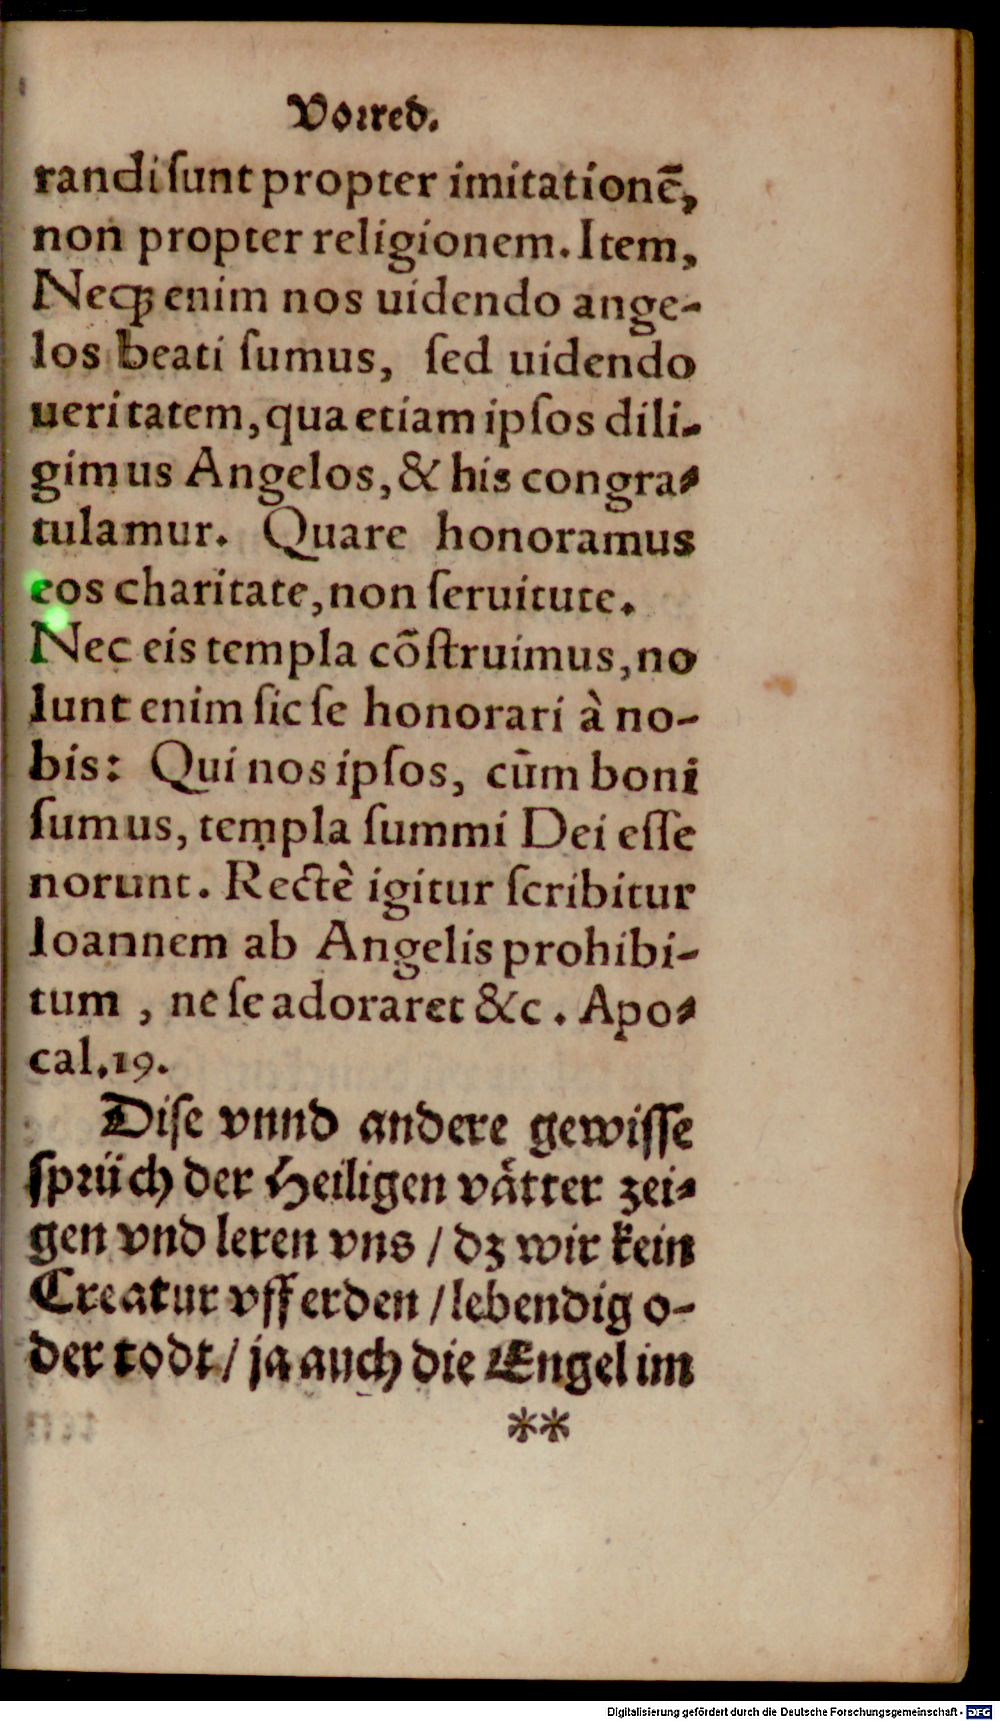 Vorred.
randi ſunt propter imitationē,
non propter religionem. Item,
Neqꝫ enim nos uidendo ange-
los beati ſumus, ſed uidendo
ueritatem, qua etiam ipſos dili-
gimus Angelos, & his congra-
tulamur. Quare honoramus
eos charitate, non ſeruitute.
Nec eis templa cõſtruimus, no
lunt enim ſic ſe honorari à no-
bis: Qui nos ipſos, cùm boni
ſumus, templa ſummi Dei eſſe
norunt. Rectè igitur ſcribitur
Ioannem ab Angelis prohibi-
tum, ne ſe adoraret &c. Apo-
cal. 19.
Diſe vnnd andere gewiſſe
ſprüch der Heiligen vaͤtter zei-
gen vnd leren vns / dz wir kein
Creatur vff erden / lebendig o-
der todt / ja auch die Engel im
**
Digitalisierung gefördert durch die Deutsche Forschungsgemeinschaft - DFG